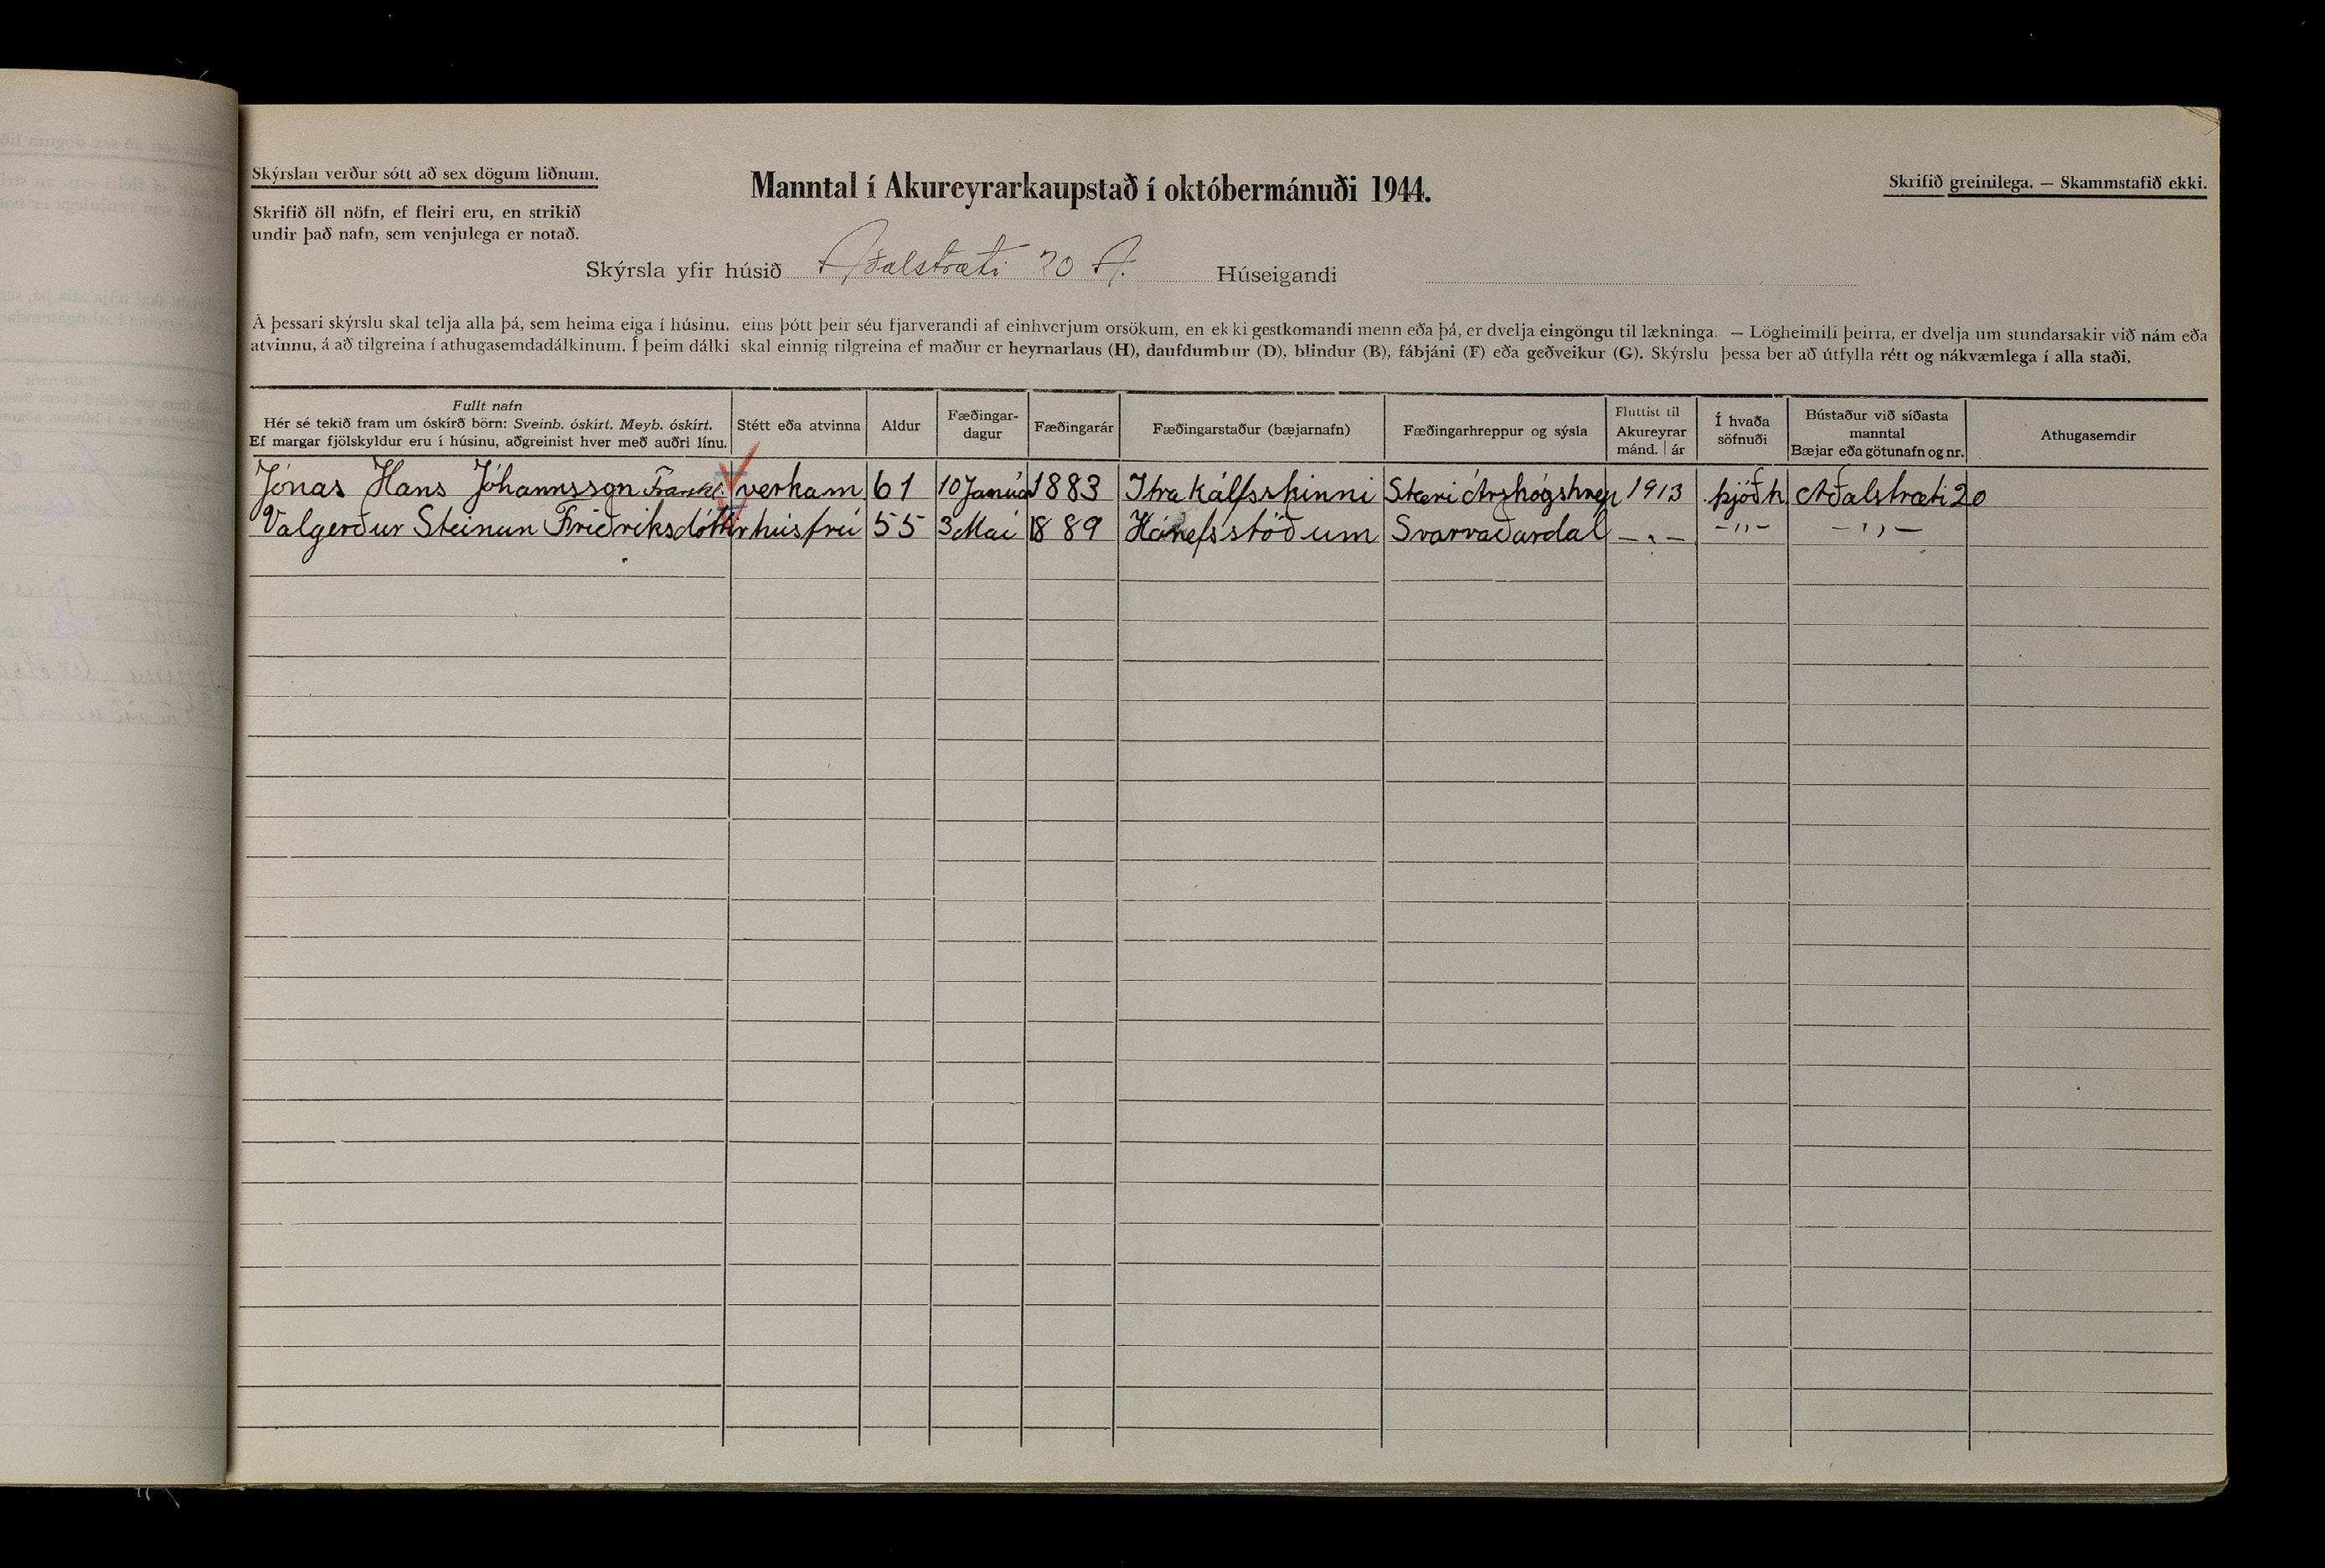 Skýrslan verður sótt að sex dögum liðnum.
Manntal í Akureyrarkaupstað í októbermánuði 1944.
Skrifið greinilega. — Skammstafið ekki.
Skrifið öll nöfn, ef fleiri eru, en strikið
undir það nafn, sem venjulega er notað.
Skýrsla yfir húsið Aðalstræti 20 A. Húseigandi
Á þessari skýrslu skal telja alla þá, sem heima eiga í húsinu, eins þótt þeir séu fjarverandi af einhverjum orsökum, en ekki gestkomandi menn eða þá, er dvelja eingöngu til lækninga. — Lögheimili þeirra, er dvelja um stundarsakir við nám eða
atvinnu, á að tilgreina í athugasemdadálkinum. Í þeim dálki skal einnig tilgreina ef maður er heyrnarlaus (H), daufdumbur (D), blindur (B), fábjáni (F) eða geðveikur (G). Skýrslu þessa ber að útfylla rétt og nákvæmlega í alla staði.
Fullt nafn
Hér sé tekið fram um óskírð börn: Sveinb. óskírt. Meyb. óskírt.
Ef margar fjölskyldur eru í húsinu, aðgreinist hver með auðri línu.
Stétt eða atvinna
Aldur
Fæðingar-
dagur
Fæðingarár
Fæðingarstaður (bæjarnafn)
Fæðingarhreppur og sýsla
Fluttist til
Akureyrar
mánd. | ár
Í hvaða
söfnuði
Bústaður við síðasta
manntal
Bæjar eða götunafn og nr.
Athugasemdir
Jónas Hans Jóhannsson verkam 61 10 Janúar 1883 Itra Kálfsskinni Stæri Árskógshrep 1913 þjóðk. Aðalstræti 20
Valgerður Steinun Friðriksdóttir húsfrú 55 3 Maí 1889 Hánefsstöðum Svarvaðardal —„— —„— —„—